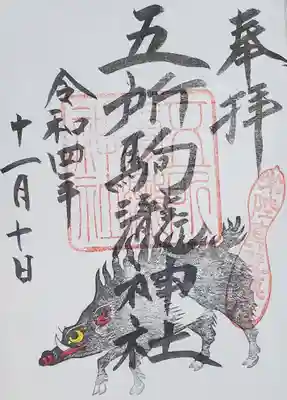 奉拝
五所駒瀧神社
令和四年
十一月十日